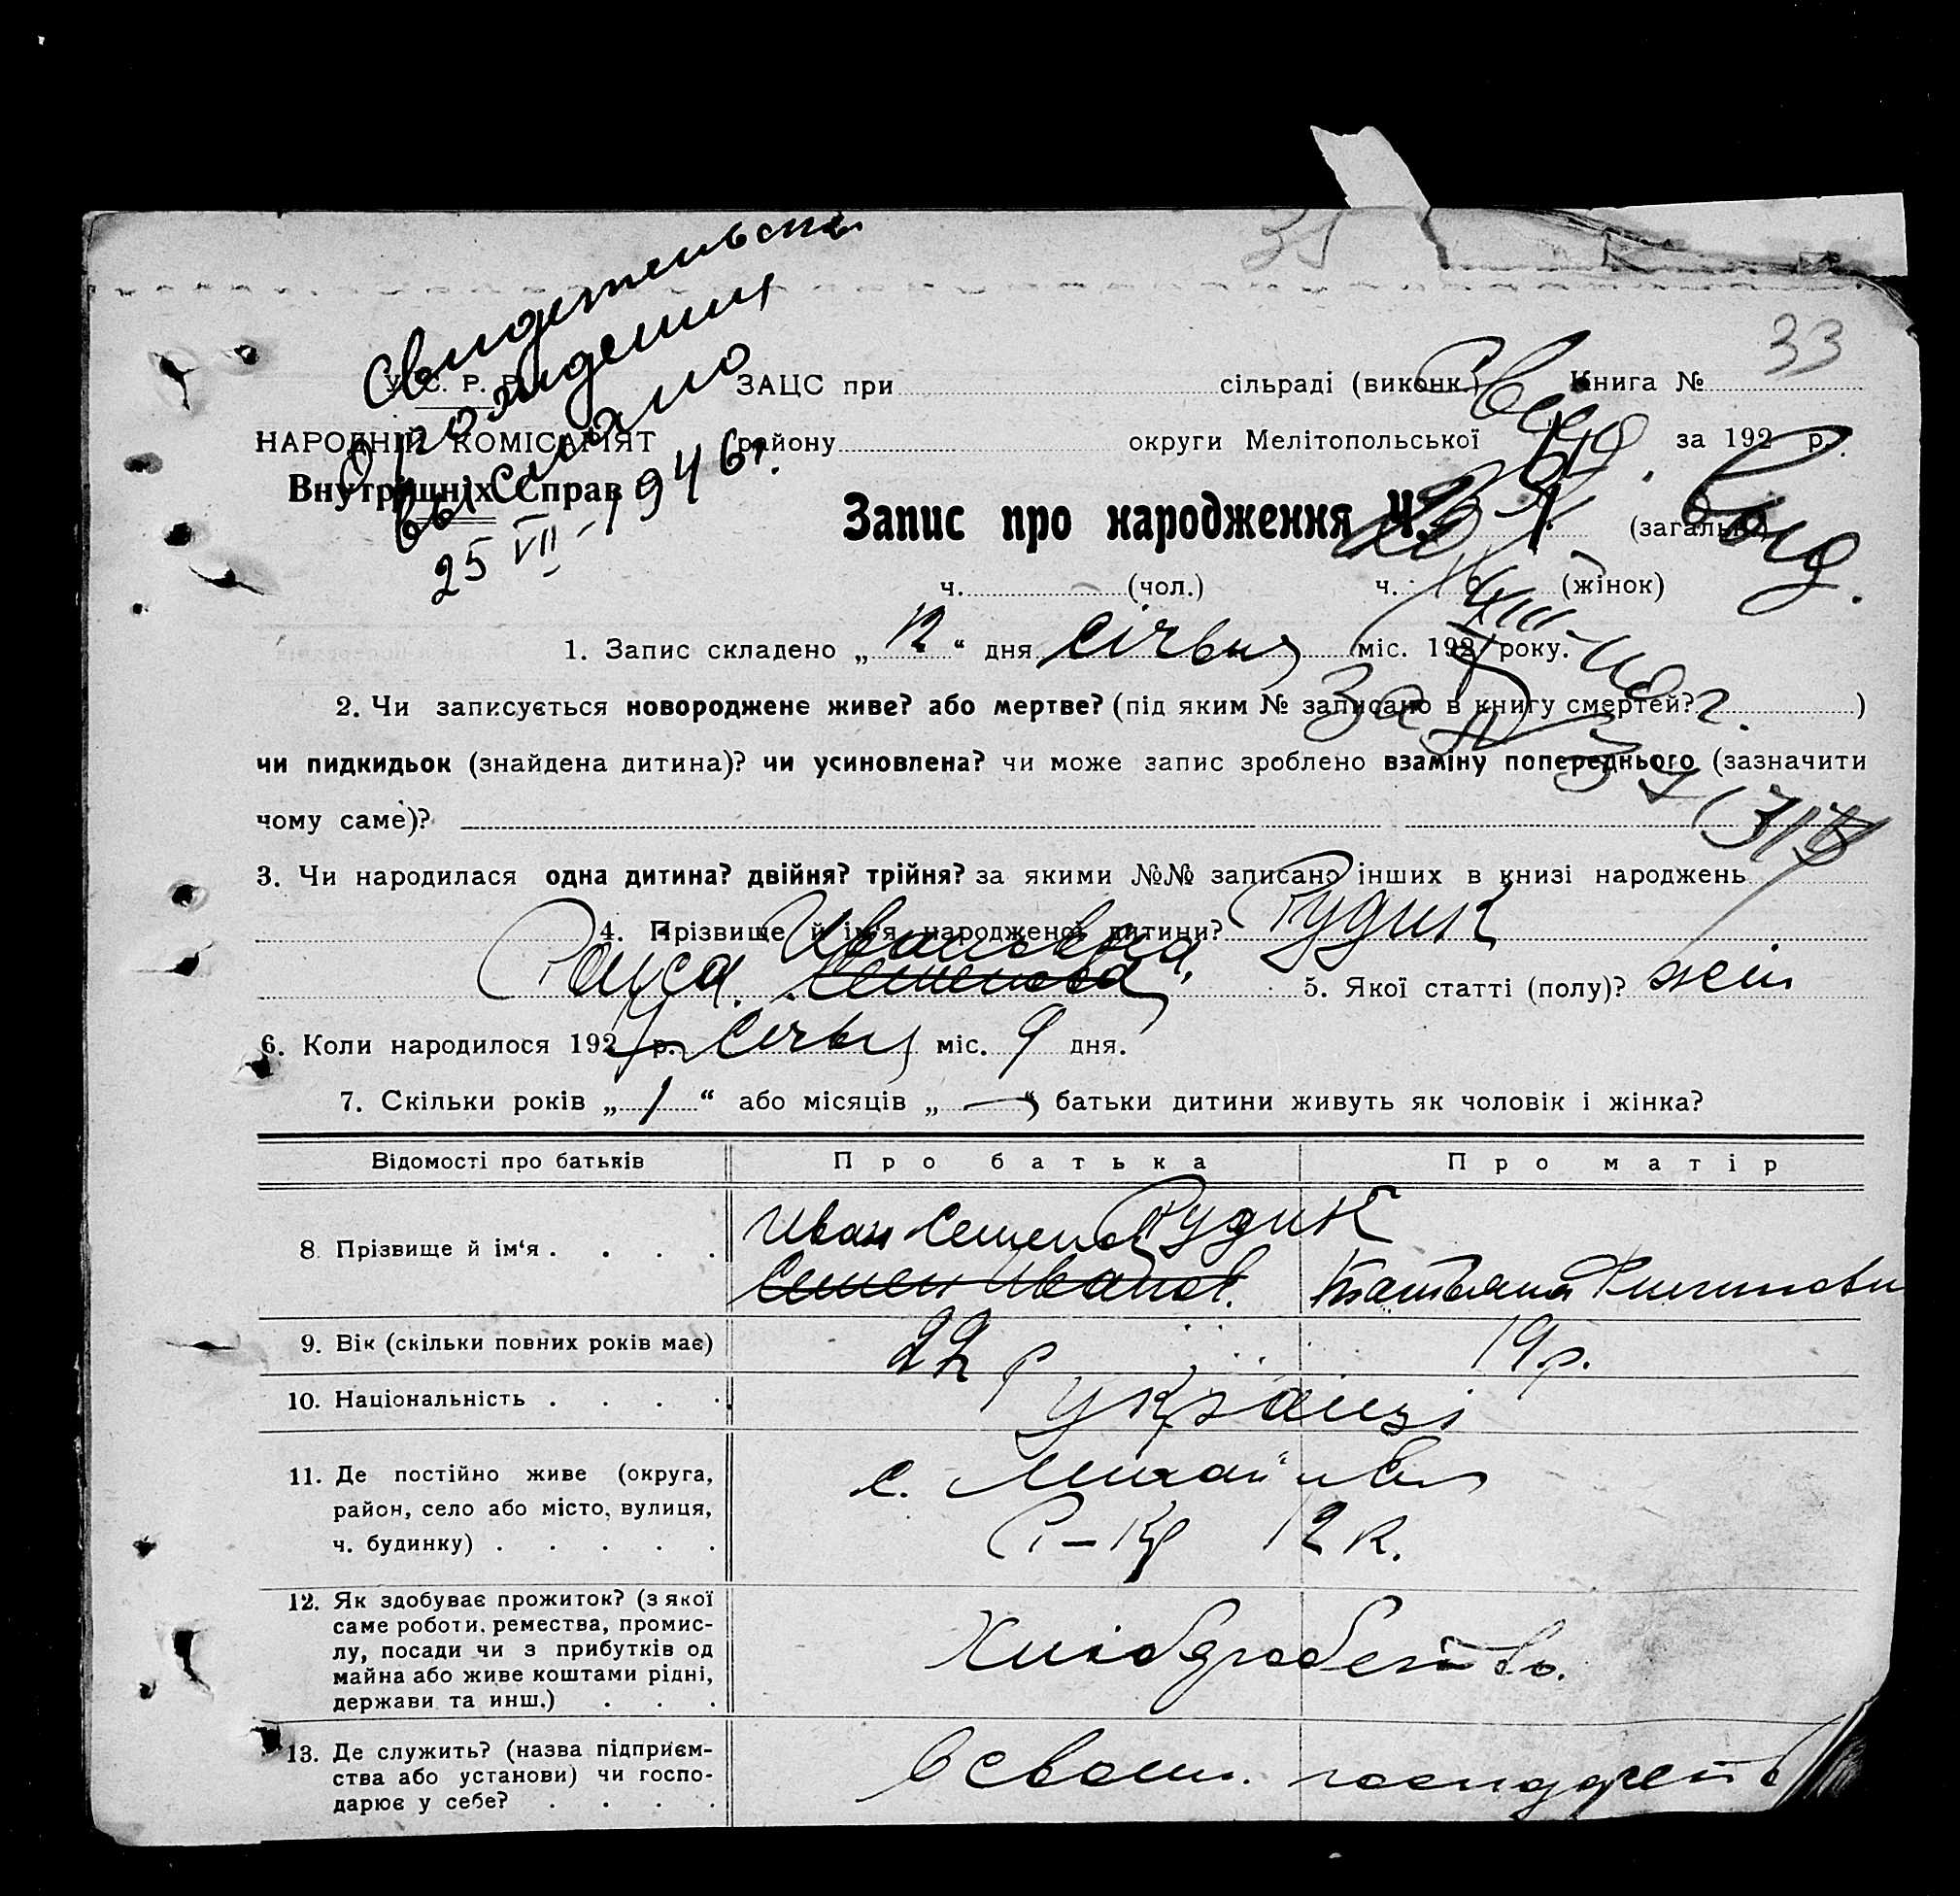 35
33
Свидетельств.
о рождении
выслано
25 VII – 1946 г.
У. С. Р. Р.
НАРОДНІЙ КОМІСАРІЯТ
Внутрішніх Справ
ЗАЦС при сільраді (виконк.) Книга №
району округи Мелітопольської за 192 р.
Запис про народження Ч. (загальн.)
ч. (чол.) ч. (жінок)
1. Запис складено „12“ дня січьня міс. 192 року.
за №
2. Чи записується новороджене живе? або мертве? (під яким № записано в книгу смертей? )
чи пидкидьок (знайдена дитина)? чи усиновлена? чи може запис зроблено взаміну попереднього (зазначити
чому саме)?
3. Чи народилася одна дитина? двійня? трійня? за якими №№ записано інших в книзі народжень
4. Прізвище й ім‘я народженої дитини? Рудик
Раиса Ивановна Семенова 5. Якої статті (полу)? жін
6. Коли народилося 192 р. січьня міс. 9 дня.
7. Скільки років „1“ або місяців „—“ батьки дитини живуть як чоловік і жінка?
Відомості про батьків Про батька Про матір
8. Прізвище й ім‘я . . . . Иван Семенов Рудик
Семен Иванов. Татьяна
9. Вік (скільки повних років має) 22 р 19 р.
10. Національність . . . . українці
11. Де постійно живе (округа, с. Михайлівка
район, село або місто, вулиця, 12 к.
ч. будинку) . . . . .
12. Як здобуває прожиток? (з якої
саме роботи, ремества, промис-
лу, посади чи з прибутків од Хліборобство.
майна або живе коштами рідні,
держави та инш.) . . .
13. Де служить? (назва підприєм- в своем. господарств
ства або установи) чи госпо-
дарює у себе? . . . .